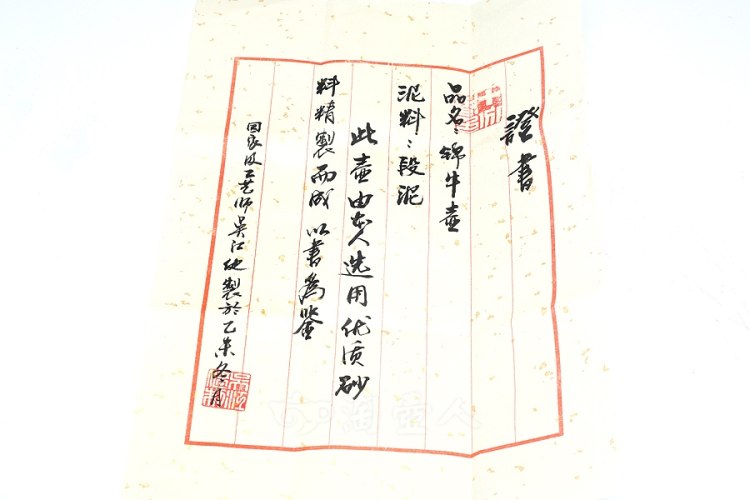 證書
品名：錦牛壺
泥料：段泥
此壺由本人选用优质砂
料精製而成 以書為鉴
国家级工艺师吴江纯製於乙未冬月